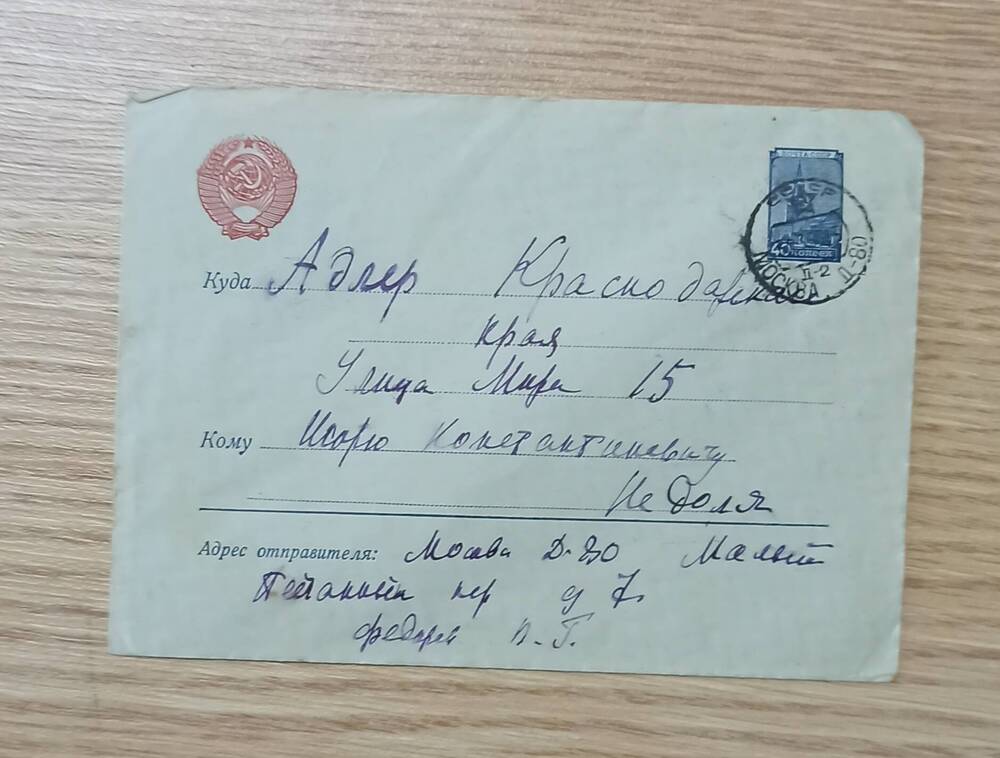 ПОЧТА СССР
40 КОПЕЕК
МОСКВА Д-80
II-2
Куда Адлер Краснодарска
края
Улица Мира 15
Кому Игорю Константиновичу
Недоля
Адрес отправителя: Москва Д-80 Малый
пер д 7
П. Г.